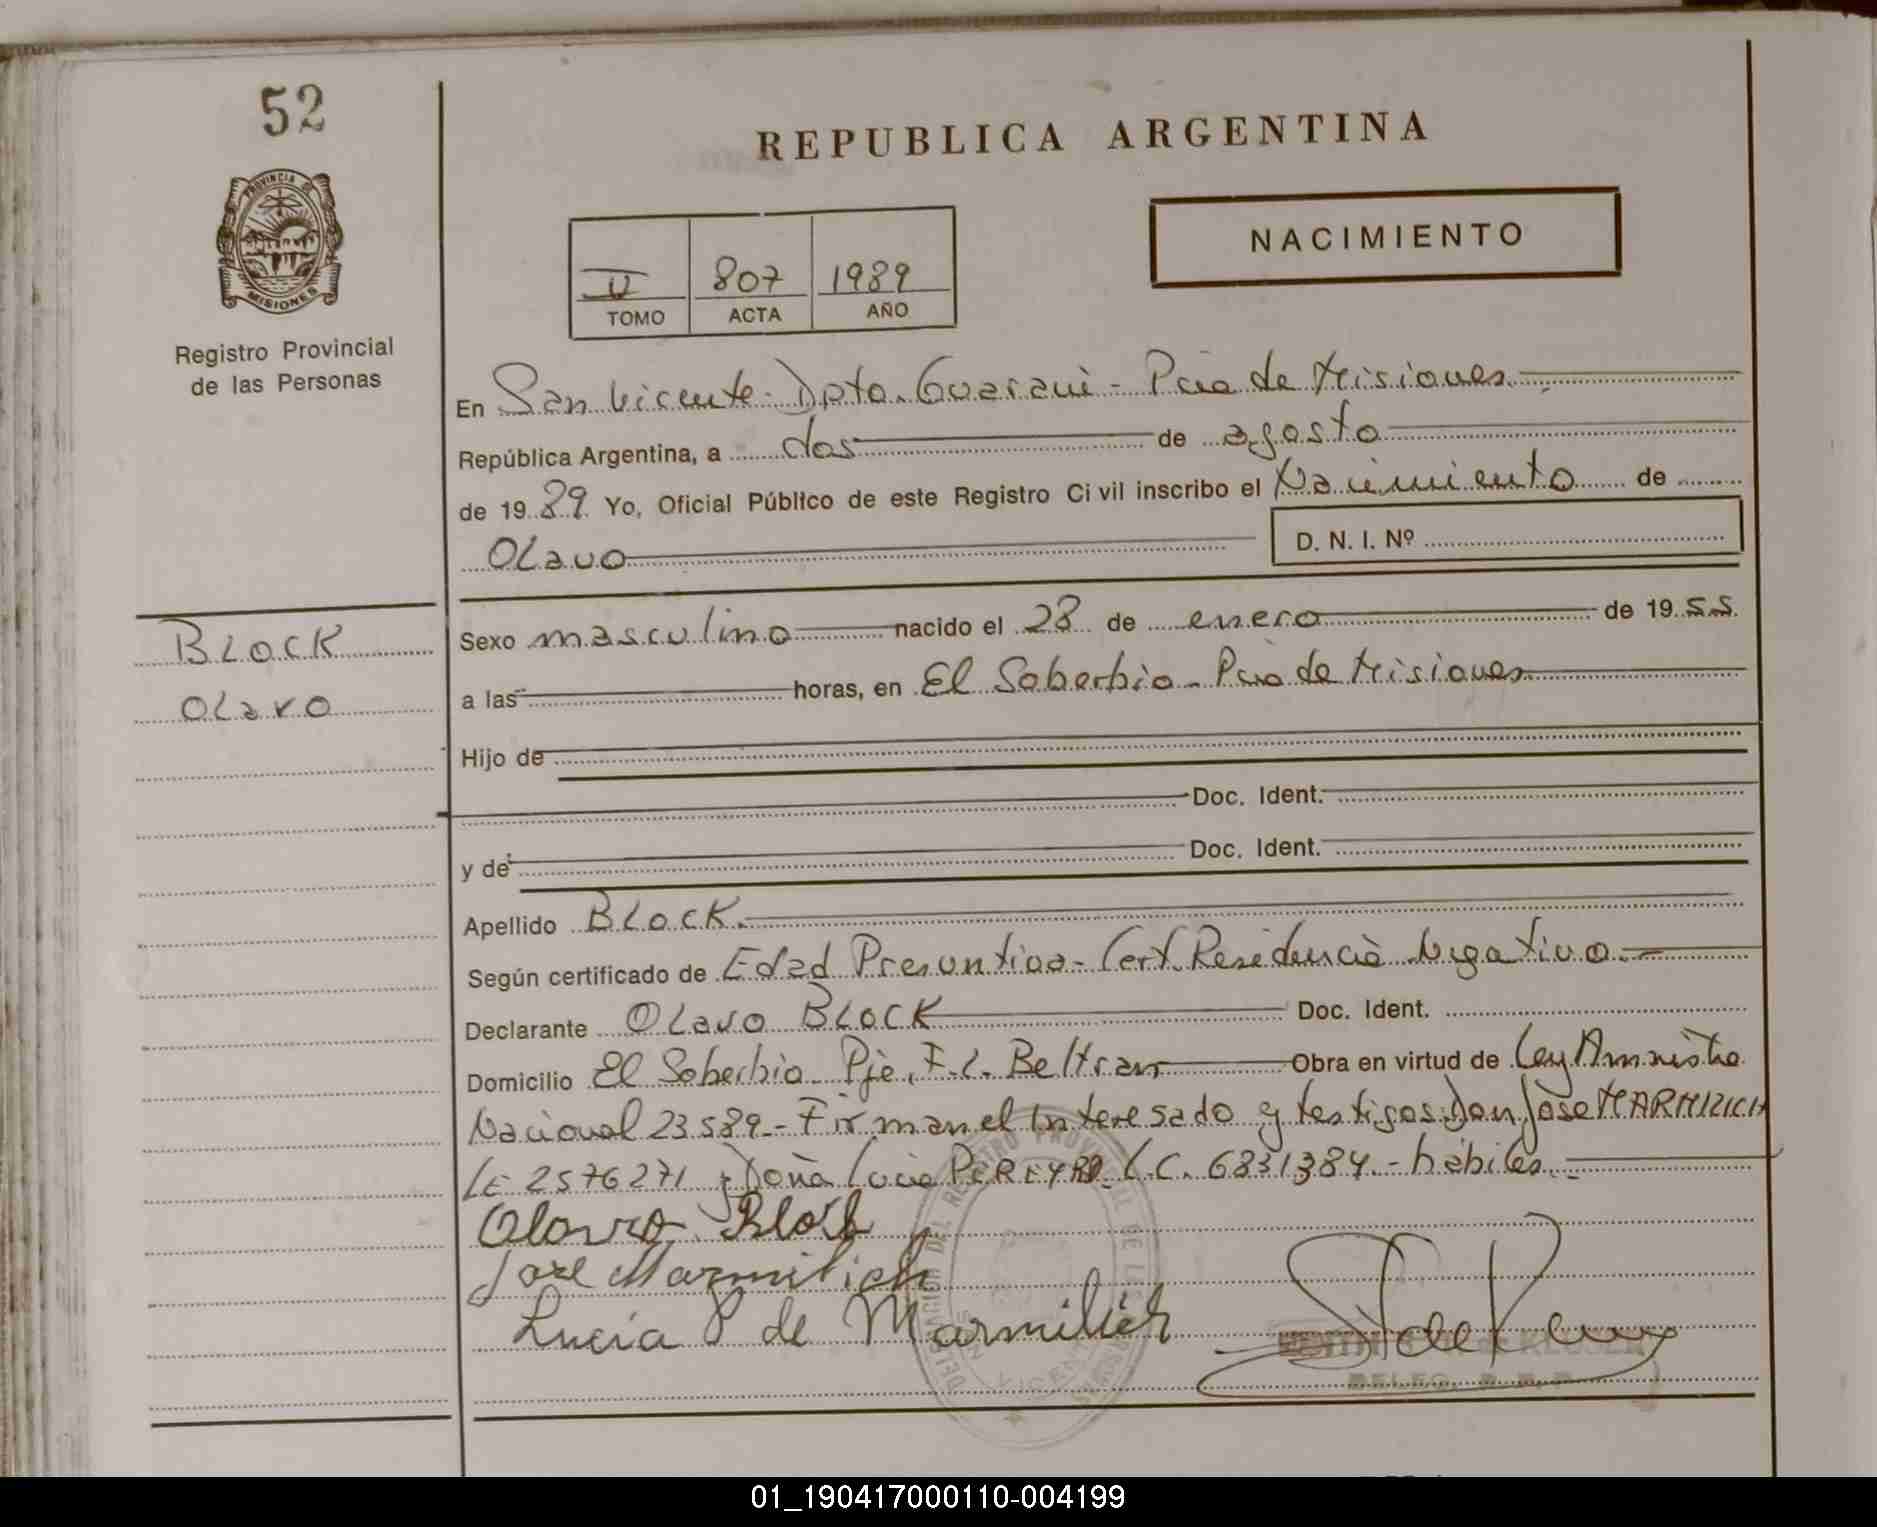 52
REPUBLICA ARGENTINA
PROVINCIA DE
MISIONES
Registro Provincial
de las Personas
NACIMIENTO
II 807 1989
TOMO ACTA AÑO
En San Vicente - Dpto. Guaraní - Pcia de Misiones
República Argentina, a dos de agosto
de 1989 Yo, Oficial Público de este Registro Civil inscribo el Nacimiento de
OLavo D. N. I. Nº
BLOCK
OLavo
Sexo masculino nacido el 28 de enero de 1955
a las horas, en El Soberbio - Pcia de Misiones
Hijo de
Doc. Ident.
y de Doc. Ident.
Apellido BLOCK.
Según certificado de Edad Presuntiva - Cert. Residencia Negativo.-
Declarante OLavo BLOCK Doc. Ident.
Domicilio El Soberbio - Pje. F. L. Beltran Obra en virtud de Ley Amnistía
Nacional 23.589.- Firman el Interesado y testigos: Don José MARMILICH
LE 2576271 y Doña Lucia PEREYRA L.C. 6831384.- hábiles.-
Olavro Block
José Marmilich
Lucia P de Marmilich
DELEGACION DEL REGISTRO PROVINCIAL DE LAS PERSONAS
SAN VICENTE